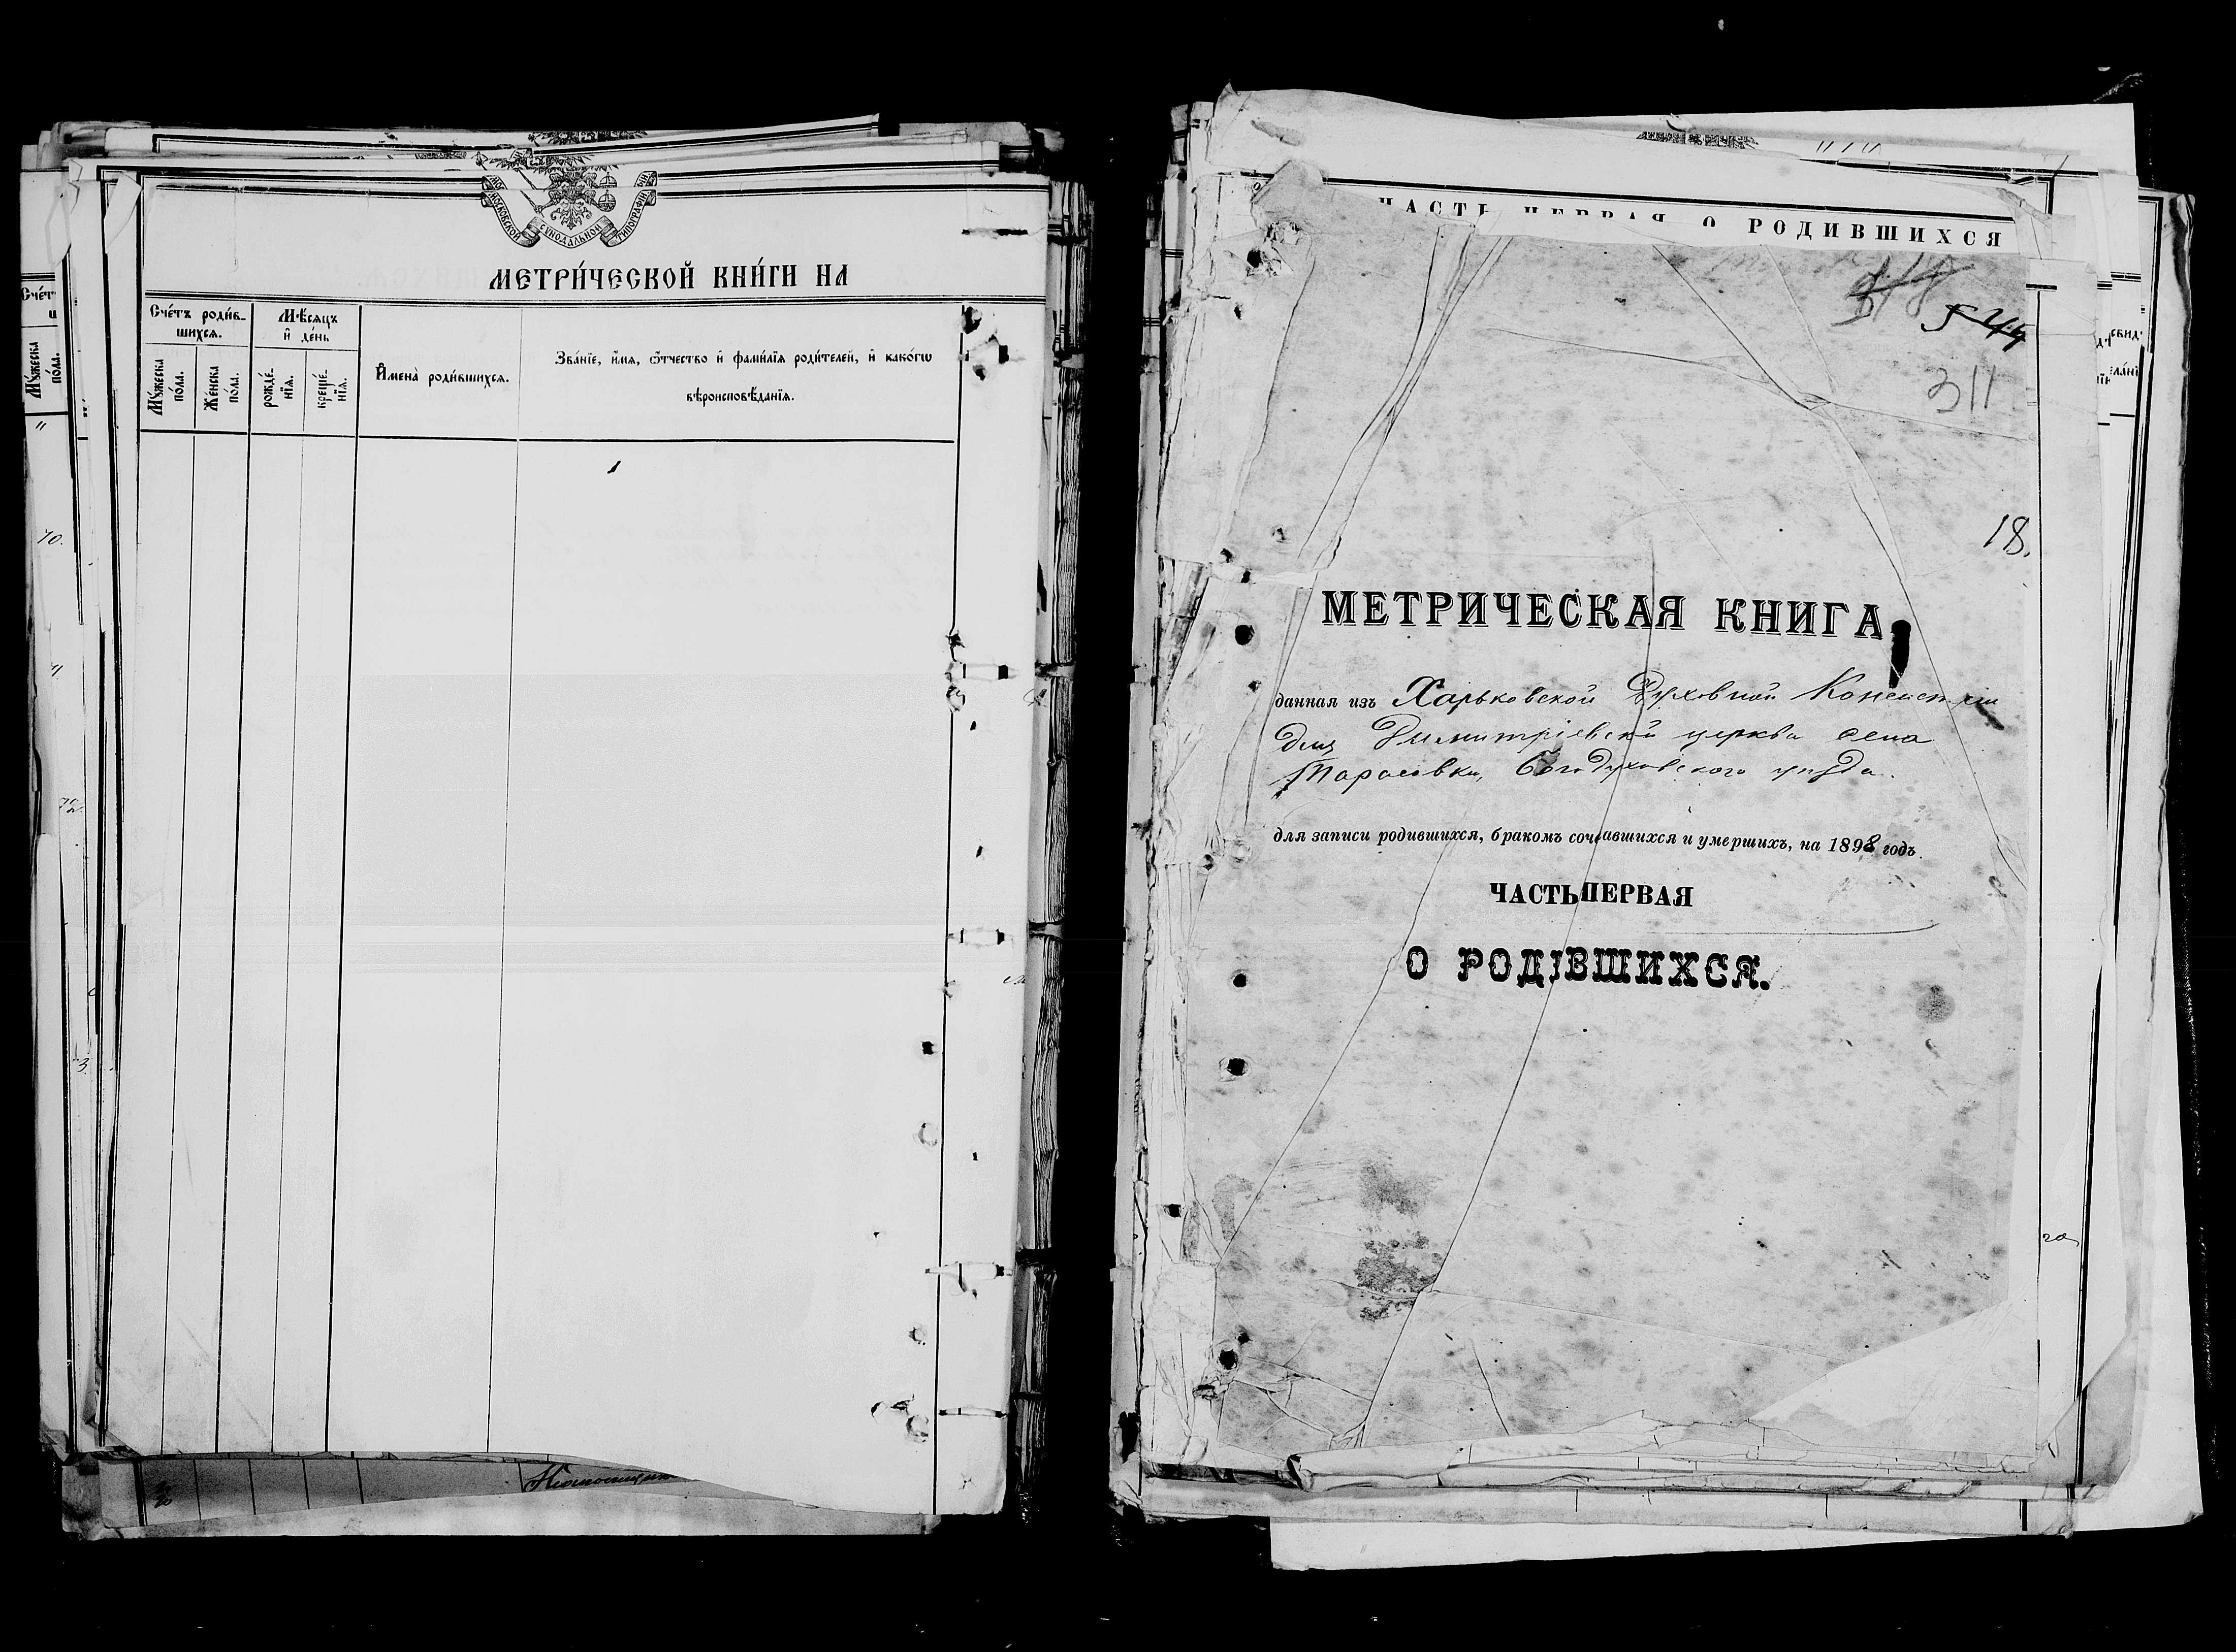 МОСКОВСКОЙ СѴНОДАЛЬНОЙ ТИПОГРАФІИ
МЕТРИ́ЧЕСКОЙ КНИ́ГИ НА
Сче́тъ роди́в-
шихся.
Мѣ́сяцъ
и҆ де́нь
Мꙋ́жеска
по́ла.
Же́нска
по́ла.
рожде́-
нїя.
креще́-
нїя.
И҆мена̀ роди́вшихся.
Зва́нїе, и҆́мя, ѻ҆́тчество и҆ фами́лїя роди́телей, и҆ како́гѡ
вѣроисповѣ́данїя.
Сче́т
Мꙋ́жеска
по́ла.
70.
ЧАСТЬ ПЕРВАЯ О РОДИВШИХСЯ
544
311
18.
МЕТРИЧЕСКАЯ КНИГА,
данная изъ Харьковской Духовной Консисторіи
для Димитріевской церкви села
Тарасовки, Богодуховского уѣзда.
для записи родившихся, бракомъ сочетавшихся и умершихъ, на 1898 годъ.
ЧАСТЬ ПЕРВАЯ
О РОДИВШИХСЯ.